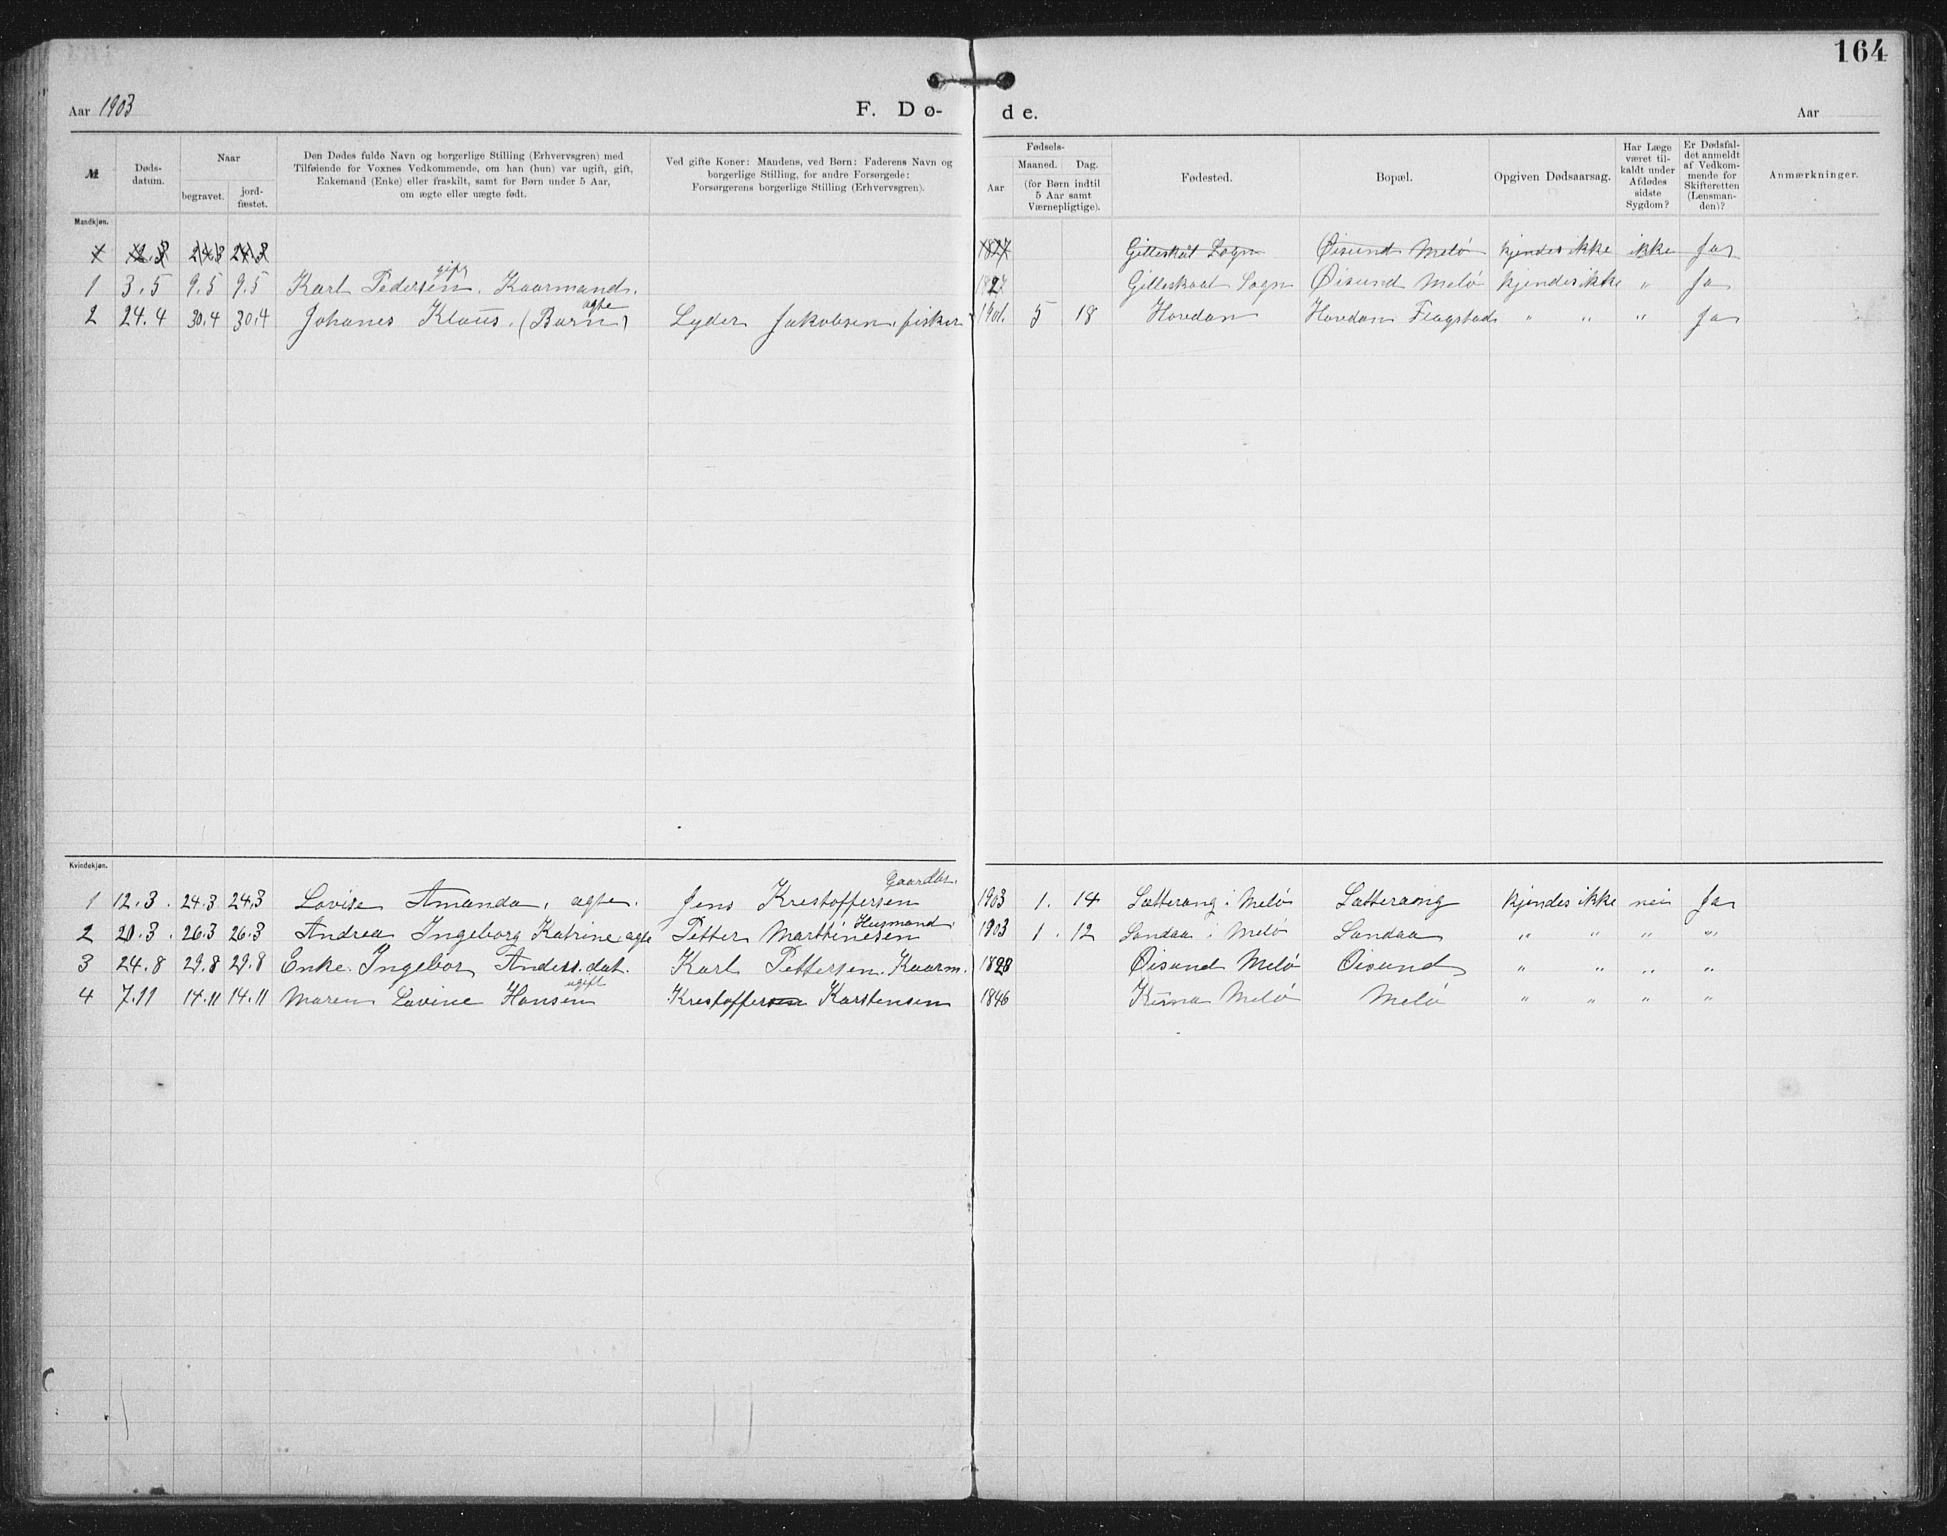 164
Aar 1903 F. Dø- de. Aar
№ Dødsdatum. Naar begravet. jordfæstet. Den Dødes fulde Navn og borgerlige Stilling (Erhvervsgren) med Tilføiende for Voxnes Vedkommende, om han (hun) var ugift, gift, Enkemand (Enke) eller fraskilt, samt for Børn under 5 Aar, om ægte eller uægte født. Ved gifte Koner: Mandens, ved Børn: Faderens Navn og borgerlige Stilling, for andre Forsørgede: Forsørgerens borgerlige Stilling (Erhvervsgren). Fødsels- Aar Maaned. Dag. (for Børn indtil 5 Aar samt Værnepligtige). Fødested. Bopæl. Opgiven Dødsaarsag. Har Læge været tilkaldt under Afdødes sidste Sygdom? Er Dødsfaldet anmeldt af Vedkommende for Skifteretten (Lensmanden)? Anmærkninger.
Mandkjøn.
24.3 24.3 1827 Gilleskål Sogn Øisund Melø kjendes ikke ikke Ja
1 3.5 9.5 9.5 Karl Pedersen gift. Kaarmand. 1827 Gilleskaal Sogn Øisund Melø kjendes ikke " Ja
2 24.4 30.4 30.4 Johanes Klaus. (Barn) ægte Lyder Jakobsen, fisker 1901. 5 18 Hovdan Hovdan Flagstad " " " Ja
Kvindekjøn.
1 12.3. 24.3 24.3 Lovise Amanda, ægte. Jens Krestoffersen Gaardbr. 1903 1. 14 Lætterang i Melø Lætterang kjendes ikke nei Ja
2 20.3. 26.3 26.3 Andrea Ingeborg Katrine ægte Petter Marthinesen Husmand. 1903 1. 12 Sandaa i Melø Sandaa " " " "
3 24.8 29.8 29.8 Enke. Ingebor Anders.dat. Karl Pettersen. Kaarm. 1828 Øisund Melø Øisund " " " "
4 7.11 14.11 14.11 Maren Lovine Hansen ugift Krestoffersen Karstensen 1846 Kunna Melø Melø " " " "